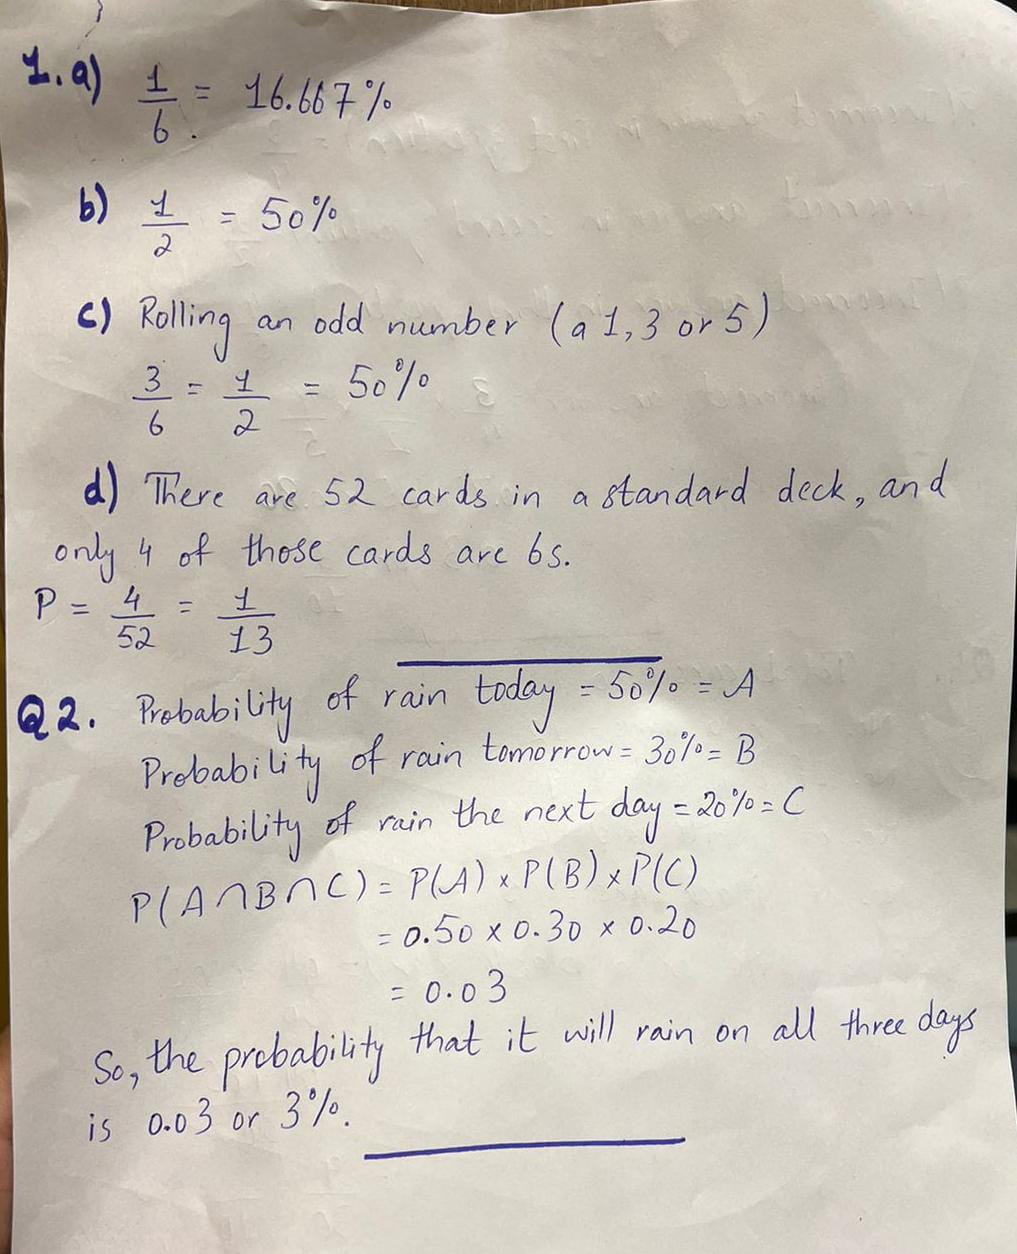 1. a) 1/6 = 16.667%
b) 1/2 = 50%
c) Rolling an odd number (a 1, 3 or 5)
3/6 = 1/2 = 50%
d) There are 52 cards in a standard deck, and
only 4 of those cards are 6s.
P = 4/52 = 1/13
Q2. Probability of rain today = 50% = A
Probability of rain tomorrow = 30% = B
Probability of rain the next day = 20% = C
P(A∩B∩C) = P(A) × P(B) × P(C)
= 0.50 × 0.30 × 0.20
= 0.03
So, the probability that it will rain on all three days
is 0.03 or 3%.